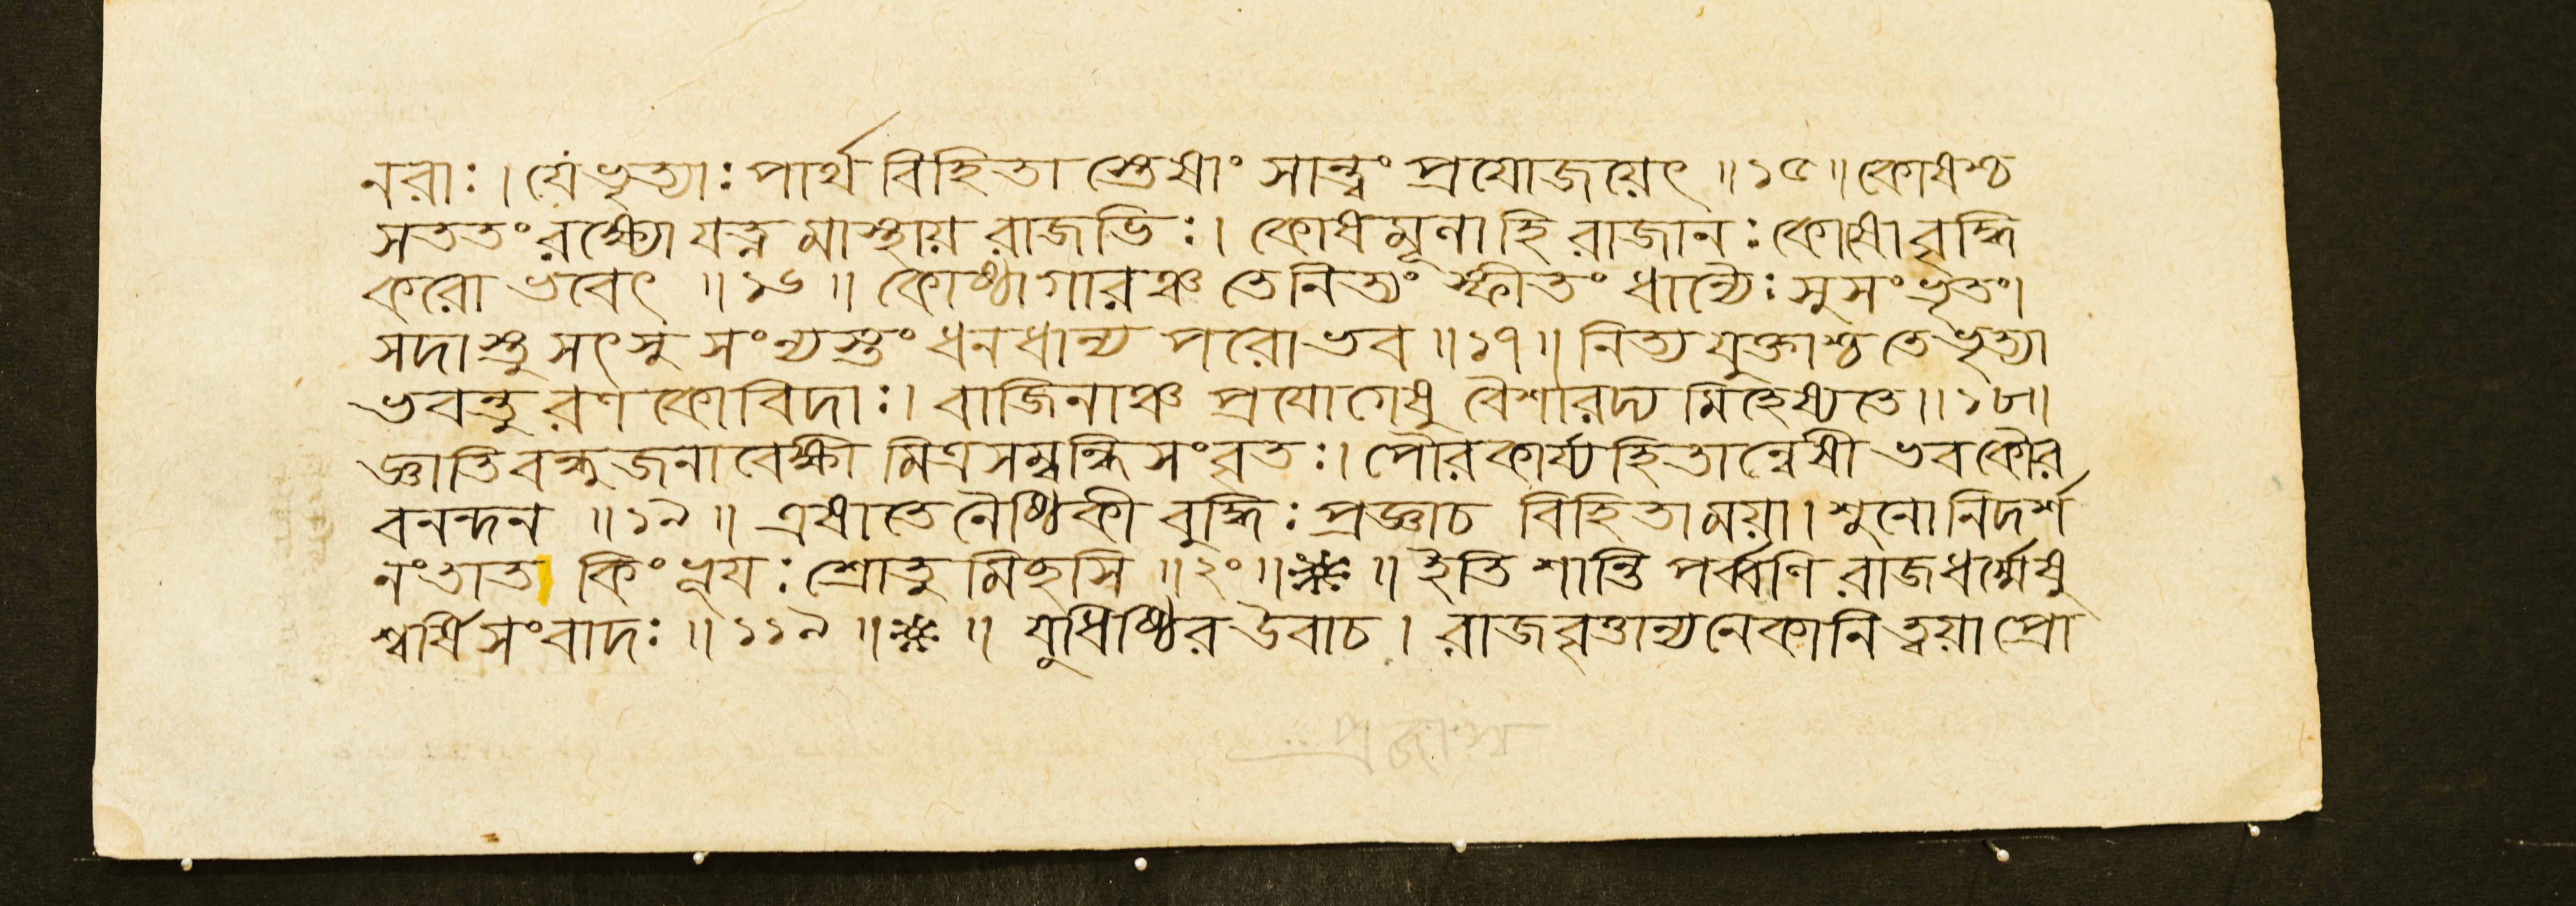 নরাঃ। যে ভৃত্যাঃ পার্থ বিহিতা স্তেষাং সান্ত্বং প্রযোজয়েৎ ॥১৫॥ কোষশ্চ
সততং রক্ষ্যো যত্ন মাস্থায় রাজভিঃ। কোষ মূলা হি রাজানঃ কোষো বৃদ্ধি
করো ভবেৎ ॥১৬॥ কোষ্ঠাগারঞ্চ তে নিত্যং স্ফীতং ধান্যৈঃ সুসংভৃতং।
সদাস্তু সৎসু সংন্যস্তং ধনধান্য পরো ভব ॥১৭॥ নিত্য যুক্তাশ্চ তে ভৃত্যা
ভবন্তু রণ কোবিদাঃ। বাজিনাঞ্চ প্রযোগেষু বৈশারদ্য মিহেষ্যতে॥১৮॥
জ্ঞাতি বন্ধু জনাবেক্ষী মিত্র সম্বন্ধি সংবৃতঃ। পৌর কার্য্য হিতান্বেষী ভব কৌর
বনন্দন ॥১৯॥ এষা তে নৈষ্ঠিকী বুদ্ধিঃ প্রজ্ঞা চ বিহিতা ময়া। শুনো নিদর্শ
নং তাত কিং ভূয়ঃ শ্রোতু মিহসি ॥২০॥❋॥ ইতি শান্তি পর্ব্বণি রাজধর্ম্মেষু
শ্বর্ষি সংবাদঃ ॥১১৯॥❋॥ যুধিষ্ঠির উবাচ। রাজবৃত্তান্যনেকানি ত্বয়া প্রো